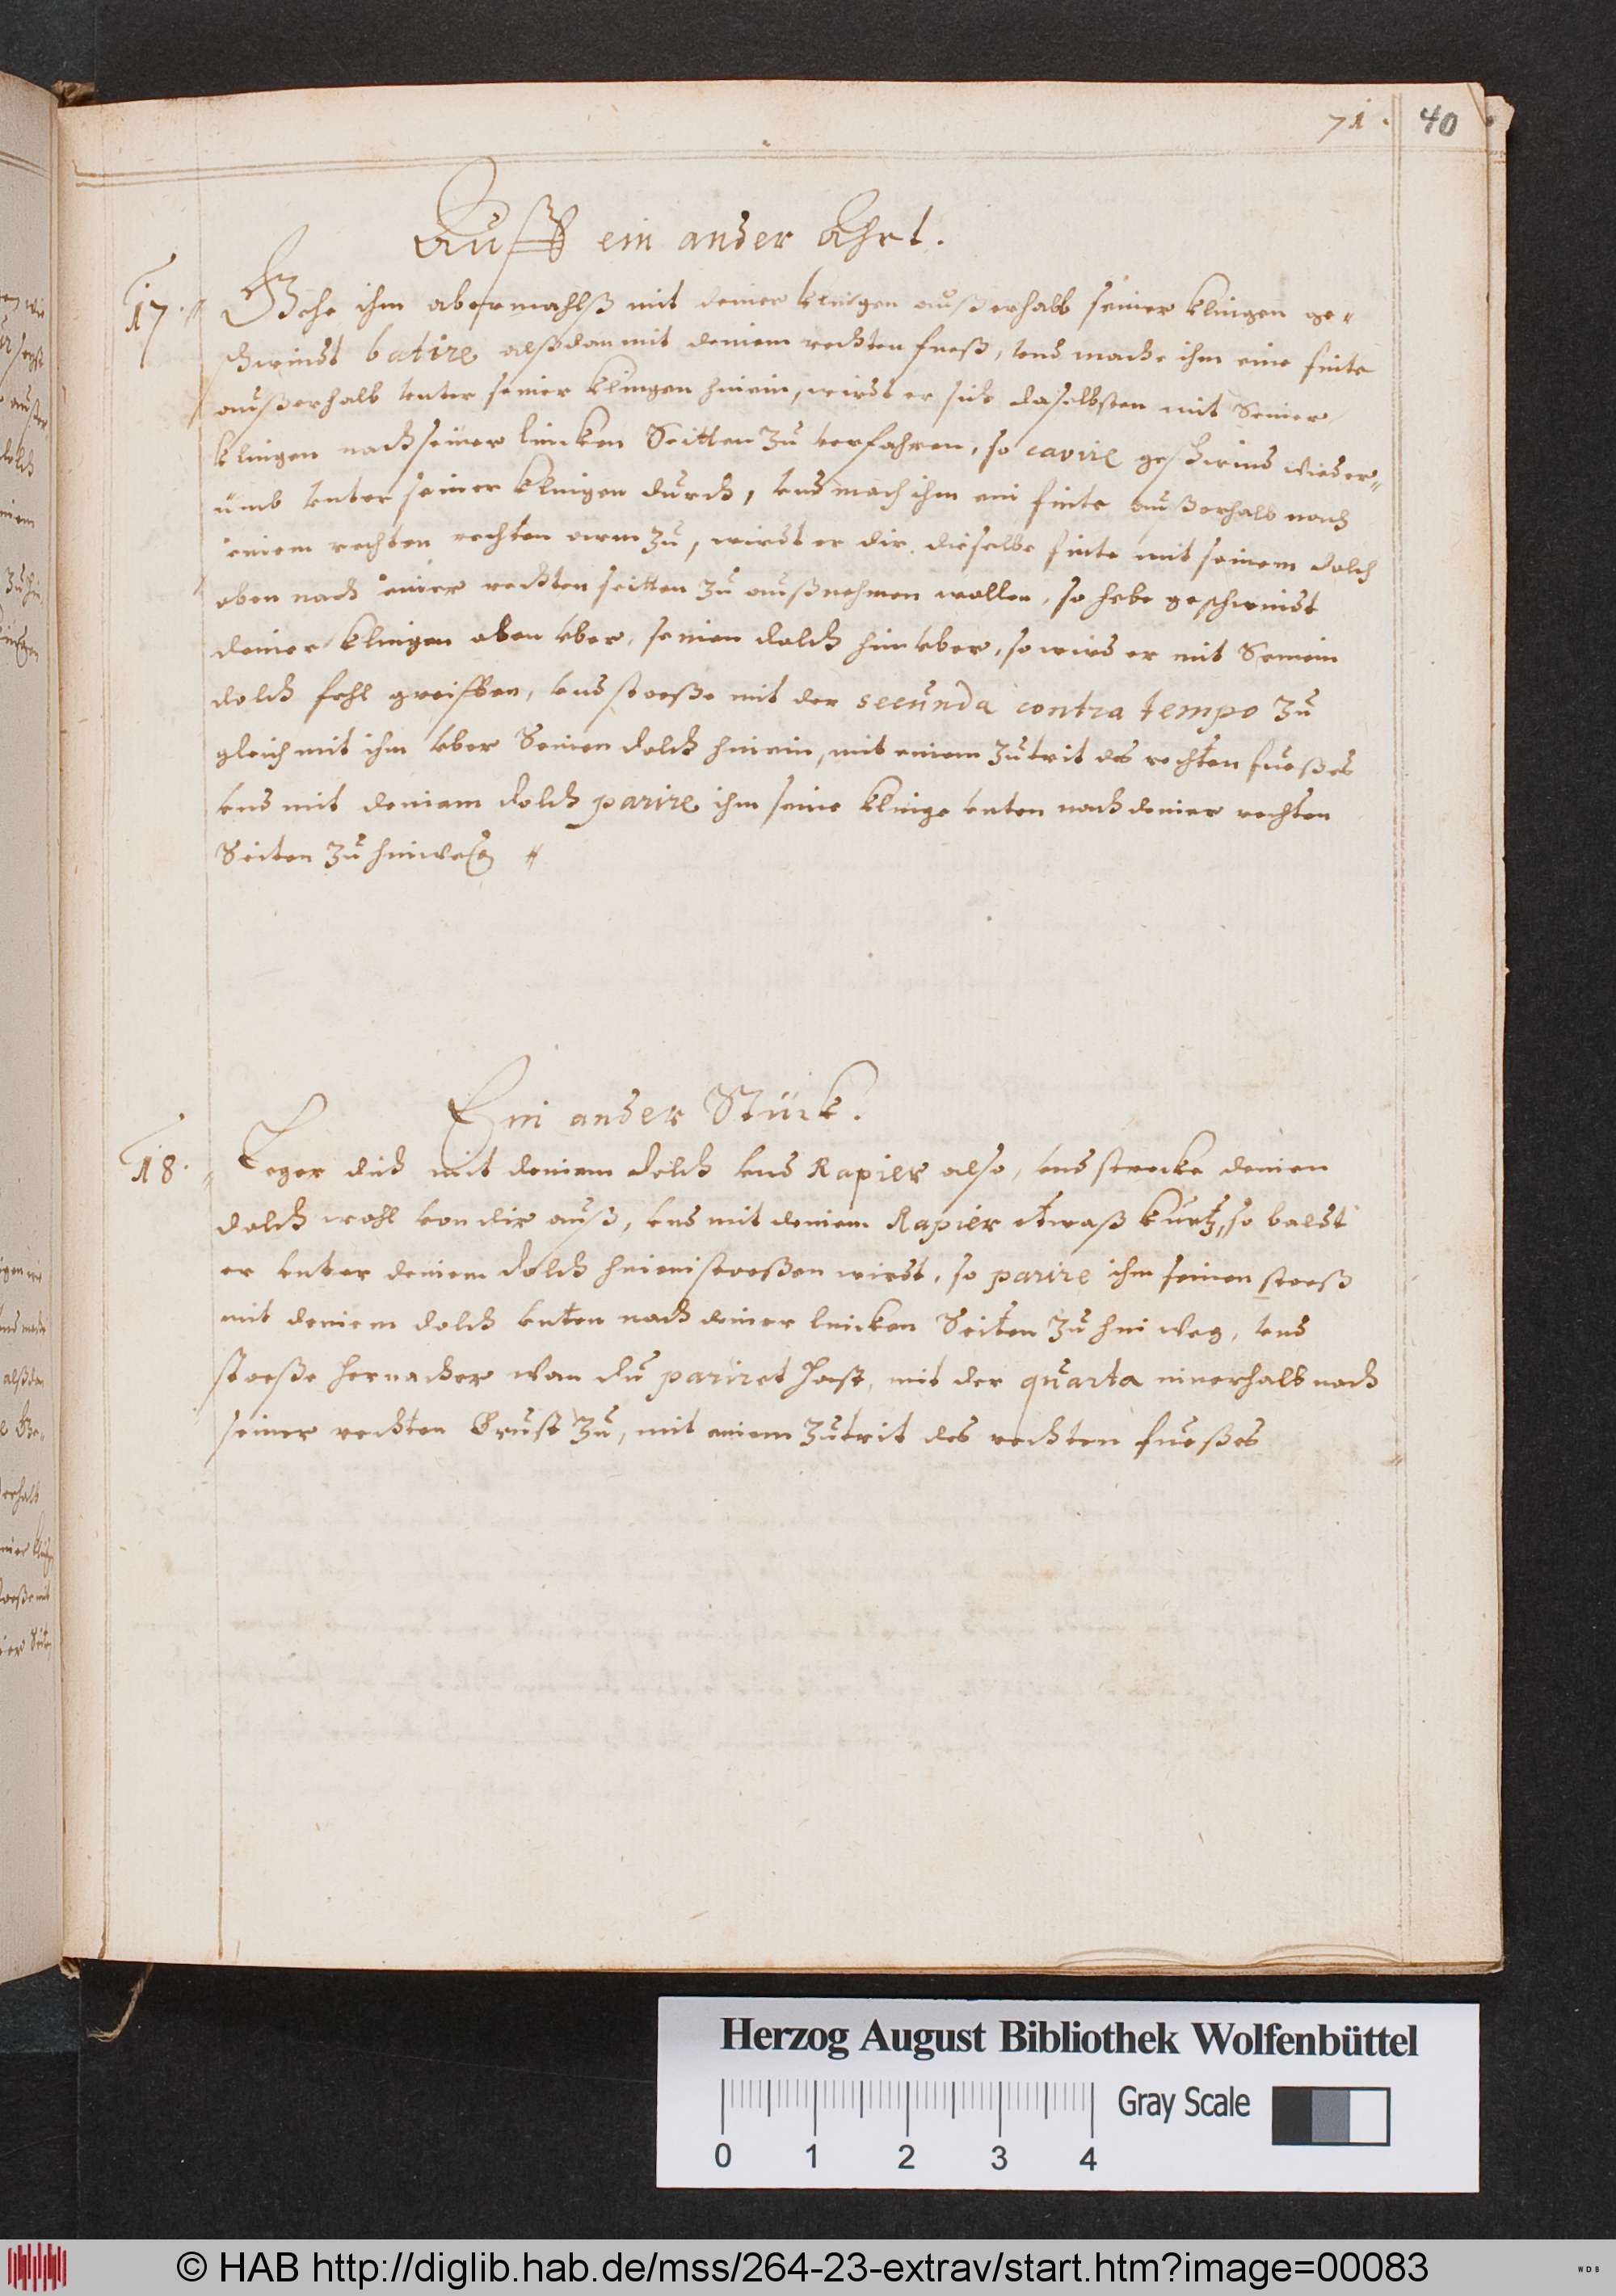 71.
40
Auff ein ander Ahrt.
17. Gehe ihm abermahlß mit deiner klingen außerhalb seiner klingen ge-
schwindt batire alßdan mit deinem rechten fueß, vnd mache ihm eine finte
außerhalb vnter seiner klingen hinein, wirdt er sich daselbsten mit Seiner
klingen nach seiner lincken Seitten zu verfahren, so cavire geschwind wieder-
umb vnter seiner klingen durch, vnd mach ihm ein finte außerhalb nach
seinem rechten rechten arm zu, wirdt er dir dieselbe finte mit seinem dolch
oben nach seiner rechten seitten zu außnehmen wollen, so hebe geschwindt
deiner klingen oben vber, seinen dolch hin vber, so wird er mit Seinem
dolch fehl greiffen, vnd stoeße mit der secunda contra tempo zu
gleich mit ihm vber Seinen dolch hinein, mit einem zutrit des rechten fueßes
vnd mit deinem dolch parire ihm seine klinge vnten nach deiner rechten
Seiten zu hinweg
Ein ander Stück.
18. Leger dich mit deinem dolch vnd Rapier also, vnd strecke deinen
dolch wohl von dir auß, vnd mit deinem Rapier etwaß kurtz, so baldt
er vnter deinem dolch hinein stoeßen wirdt, so parire ihm seinen stoeß
mit deinem dolch vnten nach deiner lincken Seiten zu hin weg, vnd
stoeße hernacher wan du pariret hast, mit der quarta innerhalb nach
seiner rechten Brust zu, mit einem zutrit des rechten fueßes
Herzog August Bibliothek Wolfenbüttel
0 1 2 3 4
Gray Scale
© HAB http://diglib.hab.de/mss/264-23-extrav/start.htm?image=00083
WDB